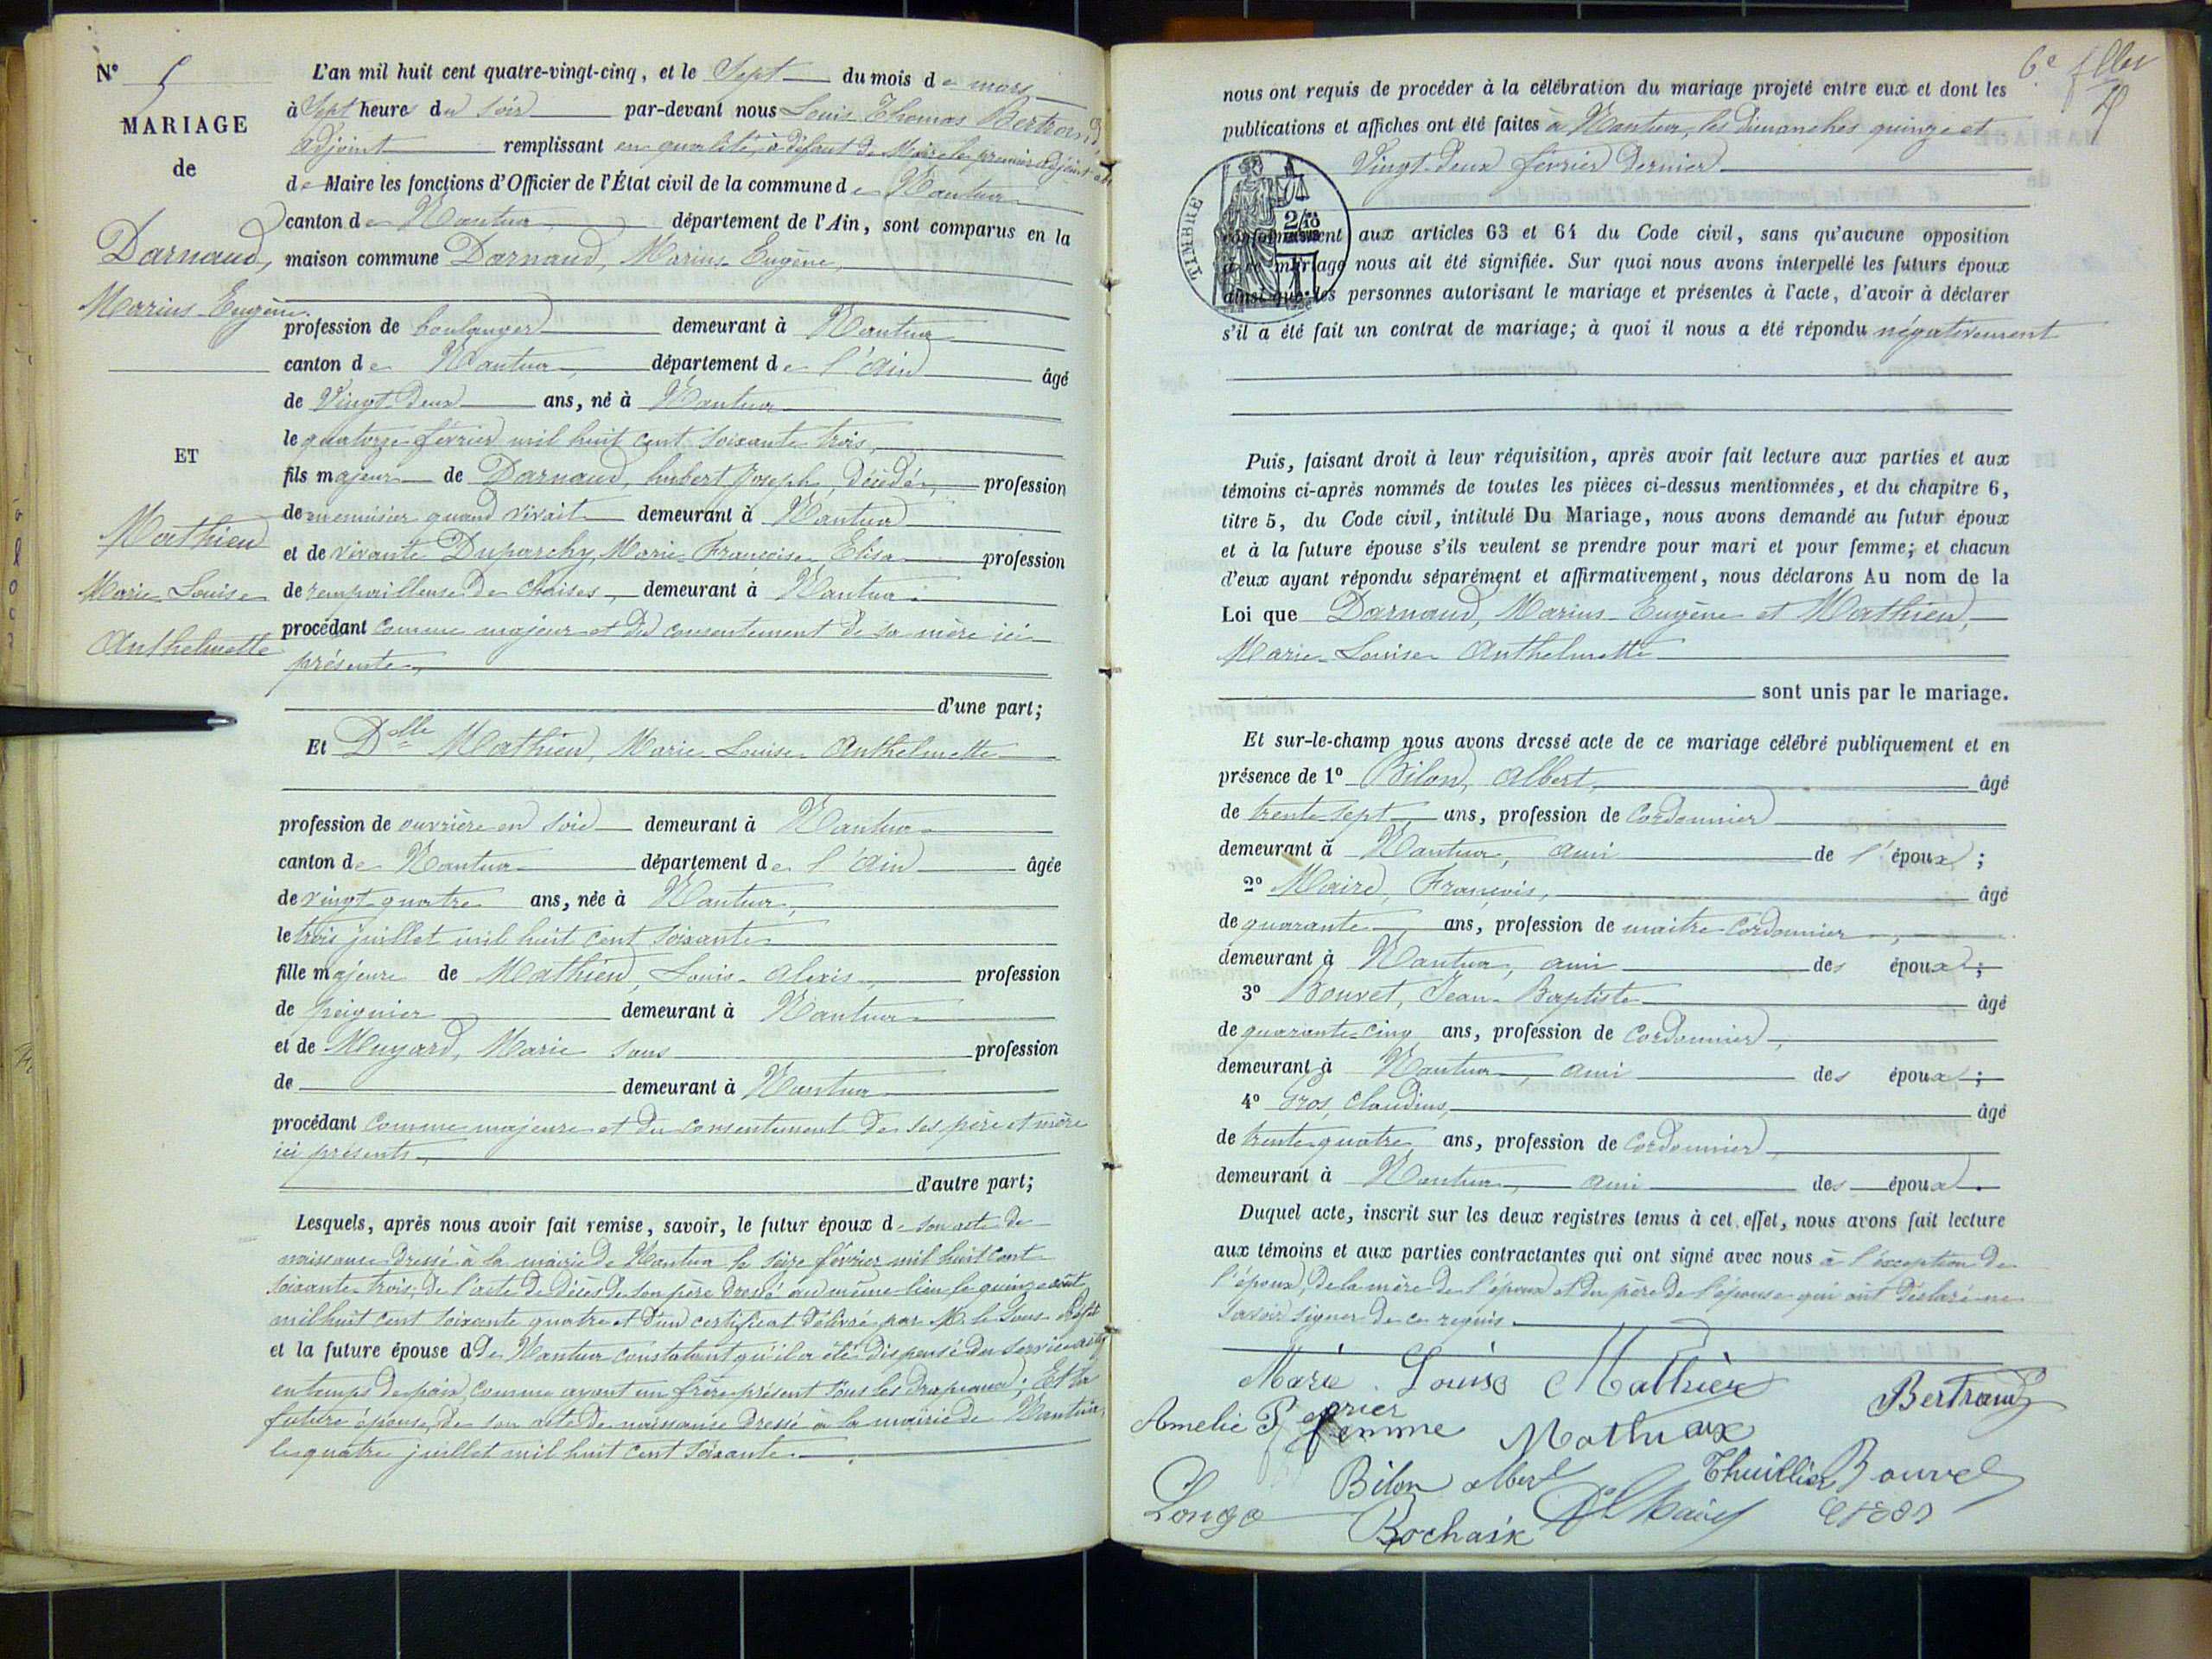 N° 5
MARIAGE
de
Darnaud,
Marius-Eugène
ET
Mathieu
Marie-Louise
Anthelmette
L'an mil huit cent quatre-vingt-cinq, et le Sept du mois de mars
à Sept heures du soir par-devant nous Louis Thomas Bertrand
adjoint remplissant en qualité, à défaut de Maire le premier adjoint
de Maire les fonctions d'Officier de l'État civil de la commune de Nantua
canton de Nantua département de l'Ain, sont comparus en la
maison commune Darnaud, Marius-Eugène,
profession de boulanger demeurant à Nantua
canton de Nantua, département de l'Ain âgé
de Vingt-deux ans, né à Nantua
le quatorze février mil huit cent soixante trois,
fils majeur de Darnaud, hubert Joseph, décédé, profession
de menuisier quand vivait demeurant à Nantua
et de vivante Duparchy, Marie-Françoise Elisa profession
de rempailleuse de chaises, demeurant à Nantua
procédant comme majeur et du consentement de sa mère ici
présente,
d'une part;
Et Dlle Mathieu, Marie-Louise-Anthelmette
profession de ouvrière en soie demeurant à Nantua
canton de Nantua département de l'Ain âgée
de vingt quatre ans, née à Nantua,
le trois juillet mil huit cent soixante
fille majeure de Mathieu, Louis-Alexis, profession
de peignier demeurant à Nantua
et de Muyard, Marie sans profession
de demeurant à Nantua
procédant comme majeure et du consentement de ses père et mère
ici présents,
d'autre part;
Lesquels, après nous avoir fait remise, savoir, le futur époux de son acte de
naissance dressé à la mairie de Nantua le seize février mil huit cent
soixante trois, de l'acte de décès de son père dressé au même lieu le quinze août
mil huit cent soixante quatre et d'un certificat délivré par M. le Sous-Préfet
et la future épouse d de Nantua constatant qu'il a été dispensé du service actif
en temps de paix, comme ayant un frère présent sous les drapeaux; Et la
future épouse, de son acte de naissance dressé à la mairie de Nantua,
le quatre juillet mil huit cent soixante.
6e
nous ont requis de procéder à la célébration du mariage projeté entre eux et dont les
publications et affiches ont été faites à Nantua, les dimanches quinze et
Vingt-deux février dernier
TIMBRE
conformément aux articles 63 et 64 du Code civil, sans qu'aucune opposition
à ce mariage nous ait été signifiée. Sur quoi nous avons interpellé les futurs époux
ainsi que les personnes autorisant le mariage et présentes à l'acte, d'avoir à déclarer
s'il a été fait un contrat de mariage; à quoi il nous a été répondu négativement
Puis, faisant droit à leur réquisition, après avoir fait lecture aux parties et aux
témoins ci-après nommés de toutes les pièces ci-dessus mentionnées, et du chapitre 6,
titre 5, du Code civil, intitulé Du Mariage, nous avons demandé au futur époux
et à la future épouse s'ils veulent se prendre pour mari et pour femme; et chacun
d'eux ayant répondu séparément et affirmativement, nous déclarons Au nom de la
Loi que Darnaud, Marius-Eugène et Mathieu,
Marie-Louise Anthelmette
sont unis par le mariage.
Et sur-le-champ nous avons dressé acte de ce mariage célébré publiquement et en
présence de 1° Bilon, Albert, âgé
de trente-sept ans, profession de Cordonnier
demeurant à Nantua, ami de l'époux;
2° Maire, François, âgé
de quarante ans, profession de maître cordonnier,
demeurant à Nantua, ami des époux;
3° Bouvet, Jean-Baptiste âgé
de quarante-cinq ans, profession de cordonnier,
demeurant à Nantua, ami des époux;
4° Gros, Claudius, âgé
de trente quatre ans, profession de Cordonnier,
demeurant à Nantua, ami des époux.
Duquel acte, inscrit sur les deux registres tenus à cet effet, nous avons fait lecture
aux témoins et aux parties contractantes qui ont signé avec nous à l'exception de
l'époux, de la mère de l'époux et du père de l'épouse qui ont déclaré ne
savoir signer de ce requis.
Marie Louise Mathieu
Bertrand
Amelie
femme Mathieux
Bilon albert
Thuillier
Bouvet
Longo
Rochaix
Maire
Gros